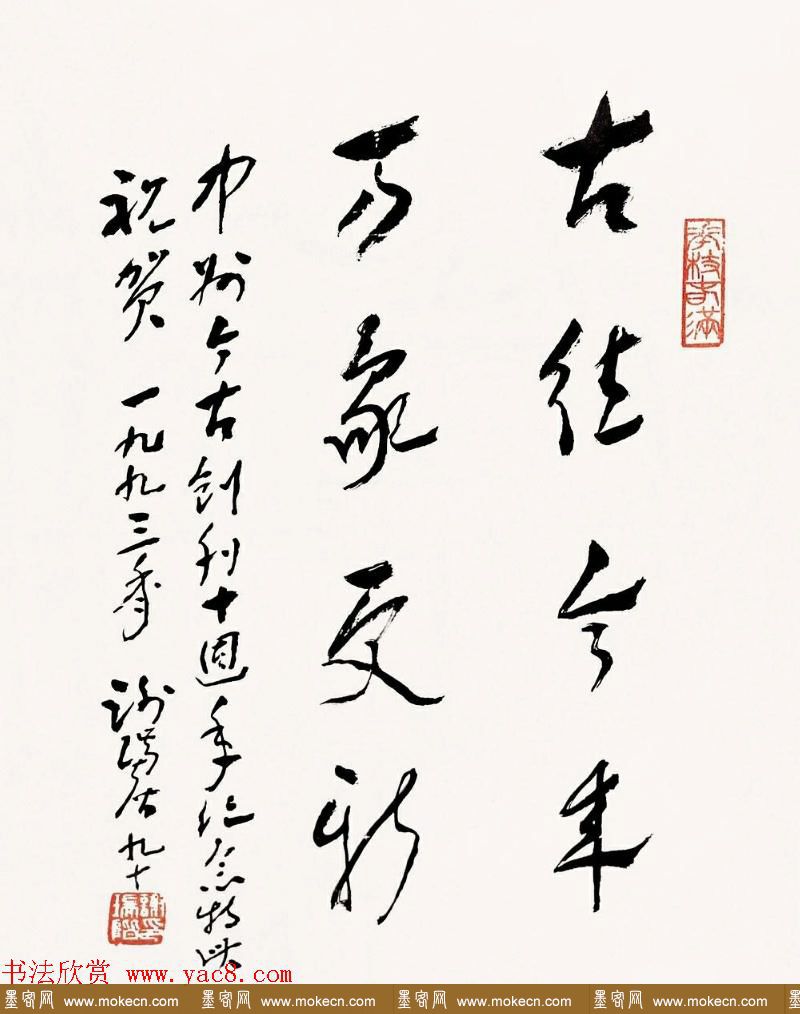 古往今来
万象更新
中州今古创刊十週年纪念特此
祝贺 一九九三年 谢瑞阶九十
謝印瑞階
书法欣赏 www.yac8.com
墨客网 www.mokecn.com 墨客网 www.mokecn.com 墨客网 www.mokecn.com 墨客网 www.mokecn.com